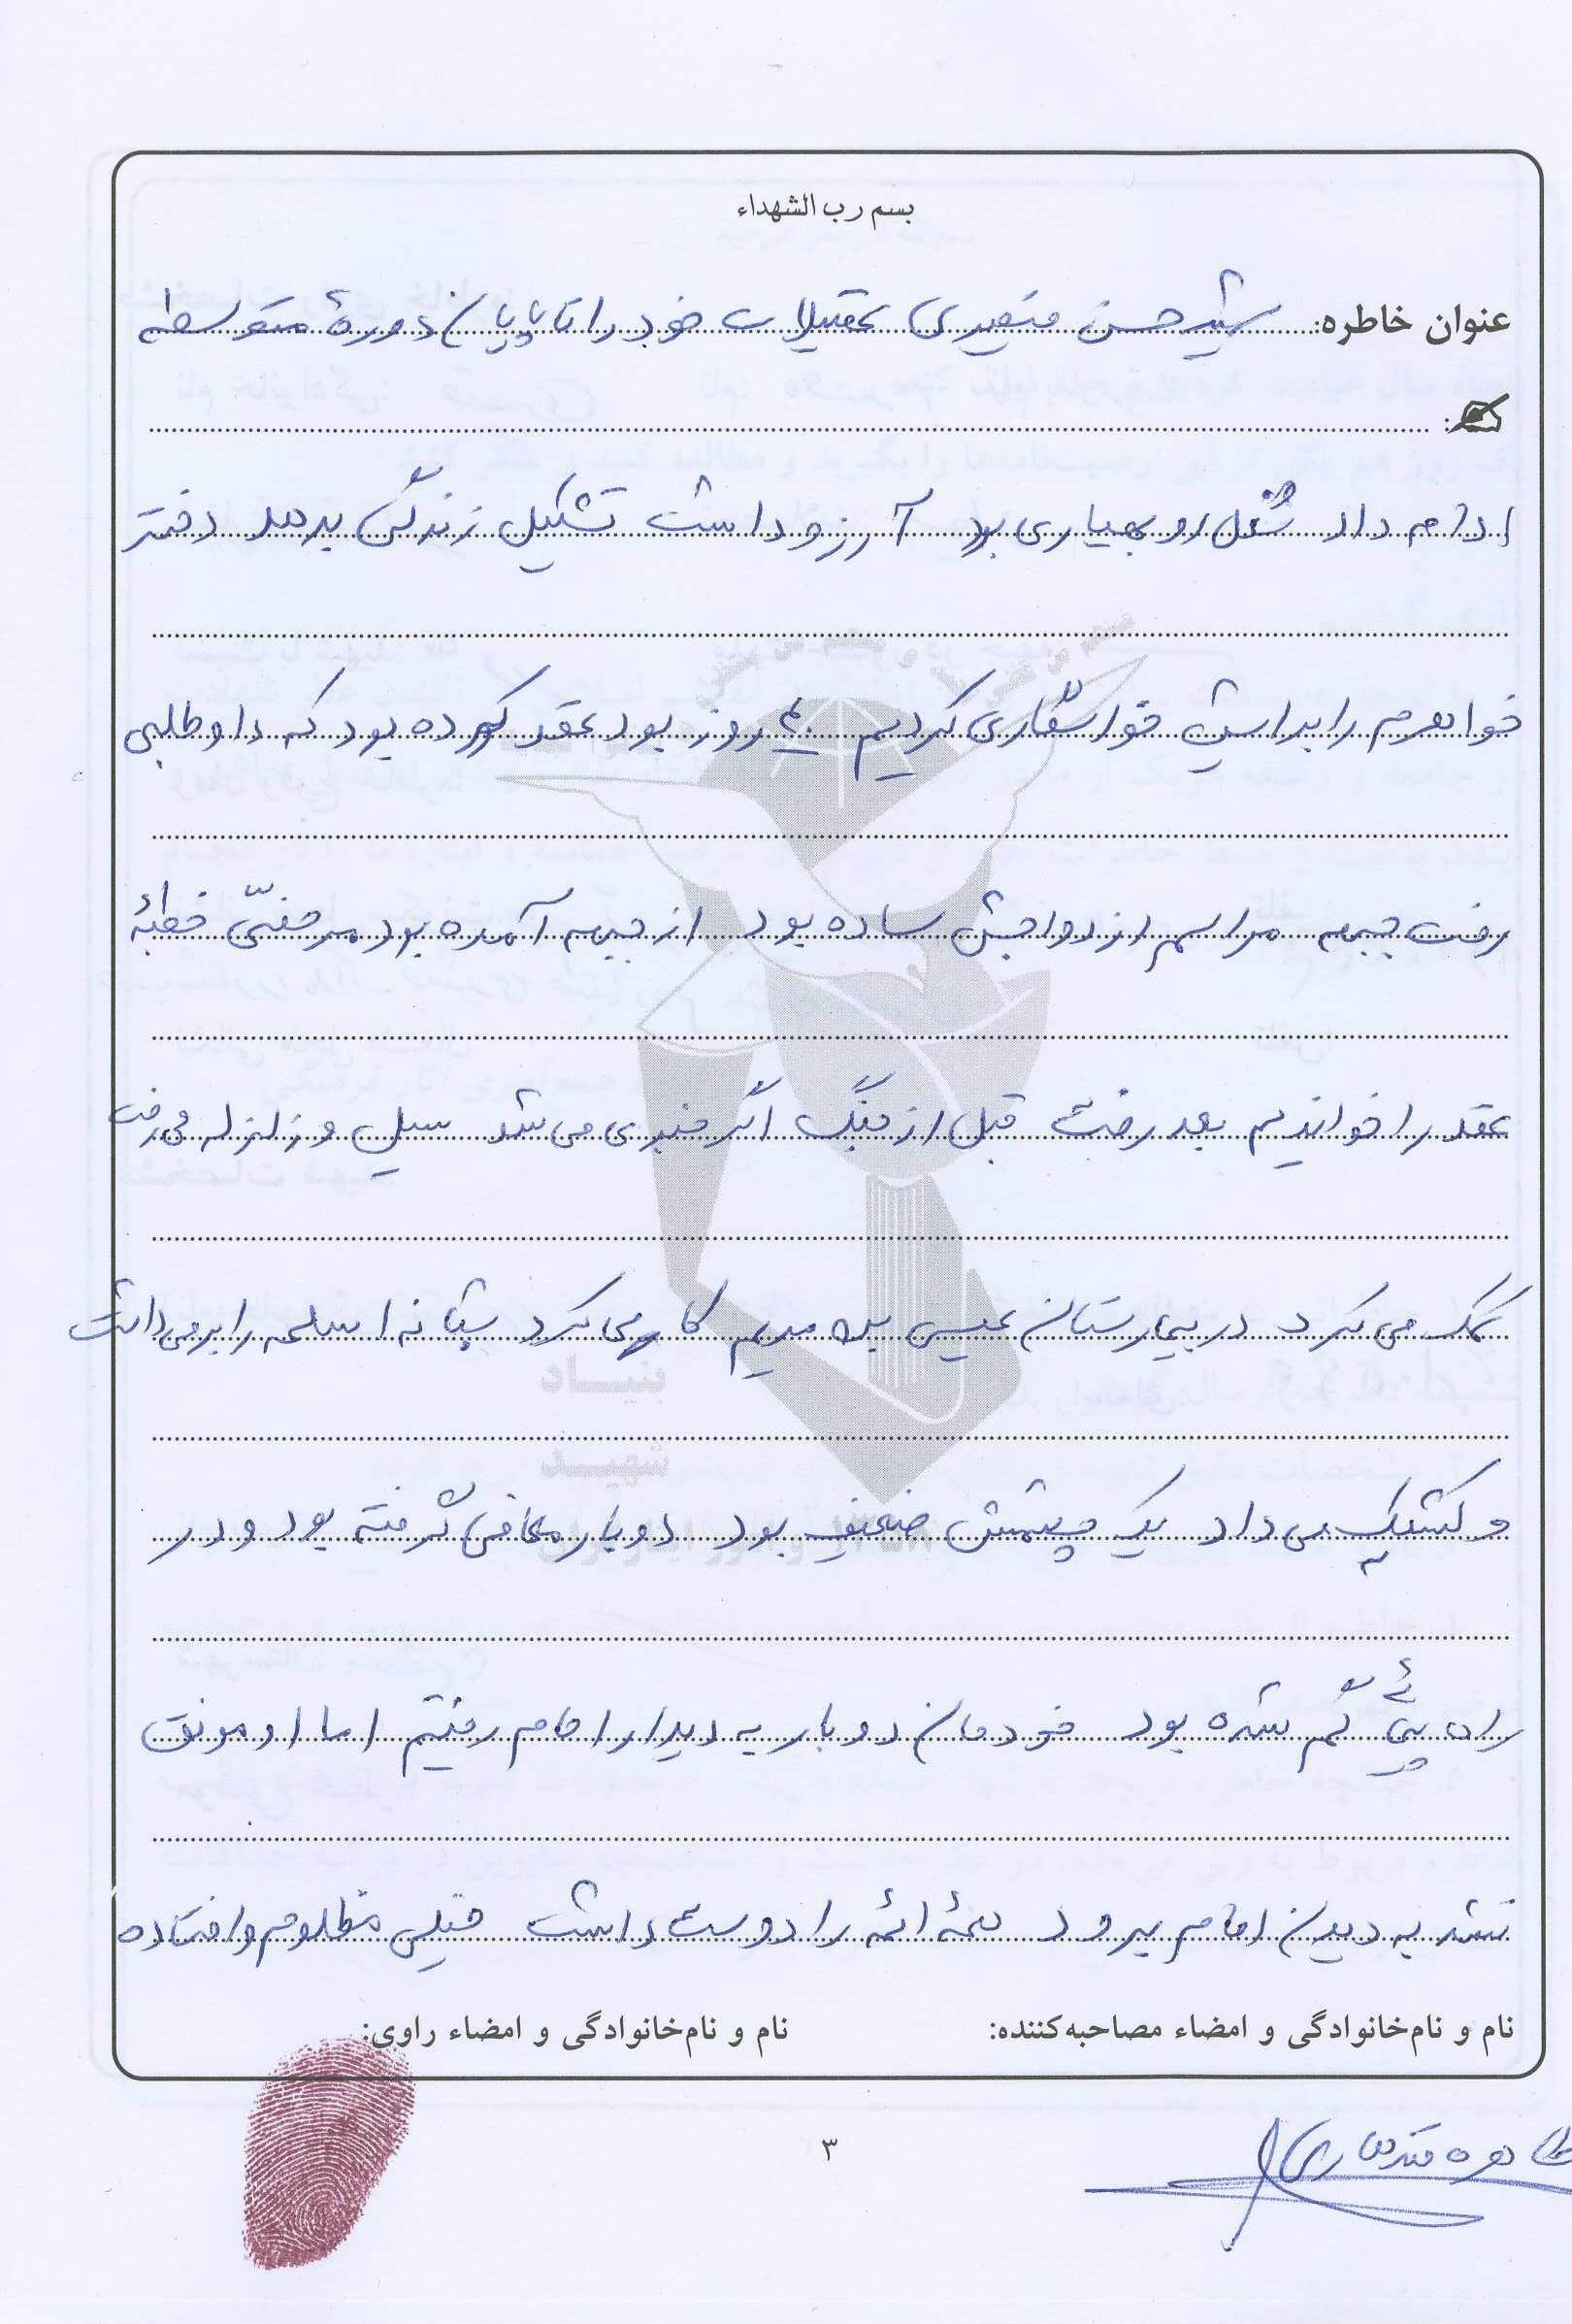 بسم رب الشهداء
عنوان خاطره: شهید حسن قنصیری تحصیلات خود را تا پایان دورهٔ متوسطه
ادامه داد شغل او بهیاری بود آرزو داشت تشکیل زندگی بدهد دختر
خواهرم را برایش خواستگاری کردیم روز بود عقد کرده بود که داوطلبی
رفت جبهه مراسم ازدواجش ساده بود از جبهه آمده بود مرخصی خطبهٔ
عقد را خواندیم بعد رفت قبل از جنگ اگر خبری می شد سیل و زلزله می رفت
کمک می کرد در بیمارستان عیسی بن مریم کار می کرد شبانه اسلحه را برمی داشت
و کشیک می داد یک چشمش ضعیف بود دوبار معافی گرفته بود و در
راه گم شده بود خودمان دوبار به دیدار امام رفتیم اما او موفق
نشد به دیدن امام برود همهٔ ائمه را دوست داشت خیلی مظلوم و افتاده
نام و نام‌خانوادگی و امضاء مصاحبه‌کننده: نام و نام‌خانوادگی و امضاء راوی:
طاهره قندهاری
۳
بنیاد
شهید